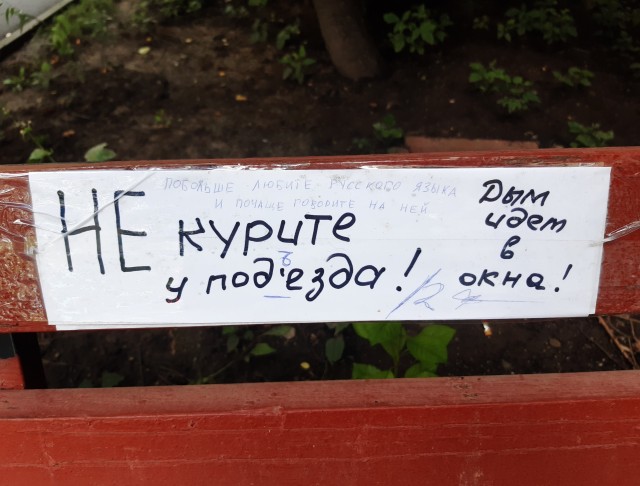 ПОБОЛЬШЕ ЛЮБИТЕ РУССКАГО ЯЗЫКА
И ПОЧАЩЕ ГОВОРИТЕ НА НЕЙ
НЕ курите
ъ
у под'езда!
Дым
идет
в
окна!